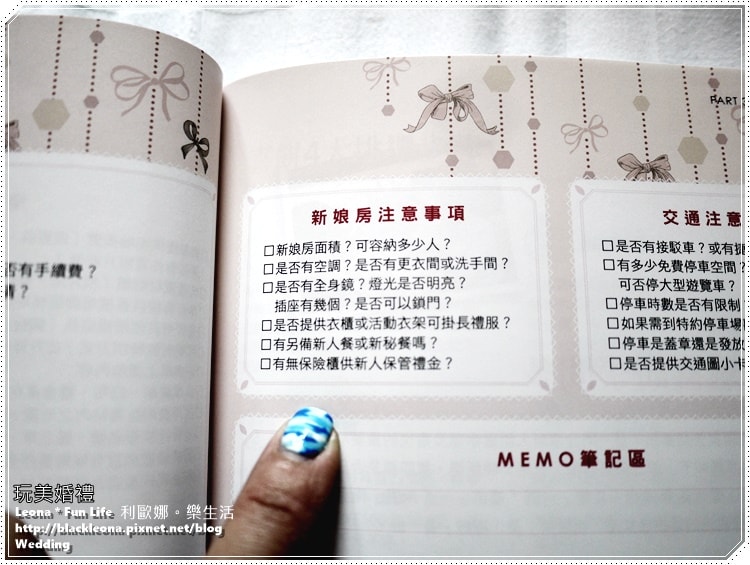 PART
否有手續費？
新娘房注意事項
□新娘房面積？可容納多少人？
□是否有空調？是否有更衣間或洗手間？
□是否有全身鏡？燈光是否明亮？
插座有幾個？是否可以鎖門？
□是否提供衣櫃或活動衣架可掛長禮服？
□有另備新人餐或新秘餐嗎？
□有無保險櫃供新人保管禮金？
交通注意
□是否有接駁車？或有
□有多少免費停車空間？
可否停大型遊覽車？
□停車時數是否有限制
□如果需到特約停車場
□停車是蓋章還是發放
□是否提供交通圖小卡
MEMO筆記區
玩美婚禮
Leona * Fun Life 利歐娜。樂生活
http://blackleona.pixnet.net/blog
Wedding